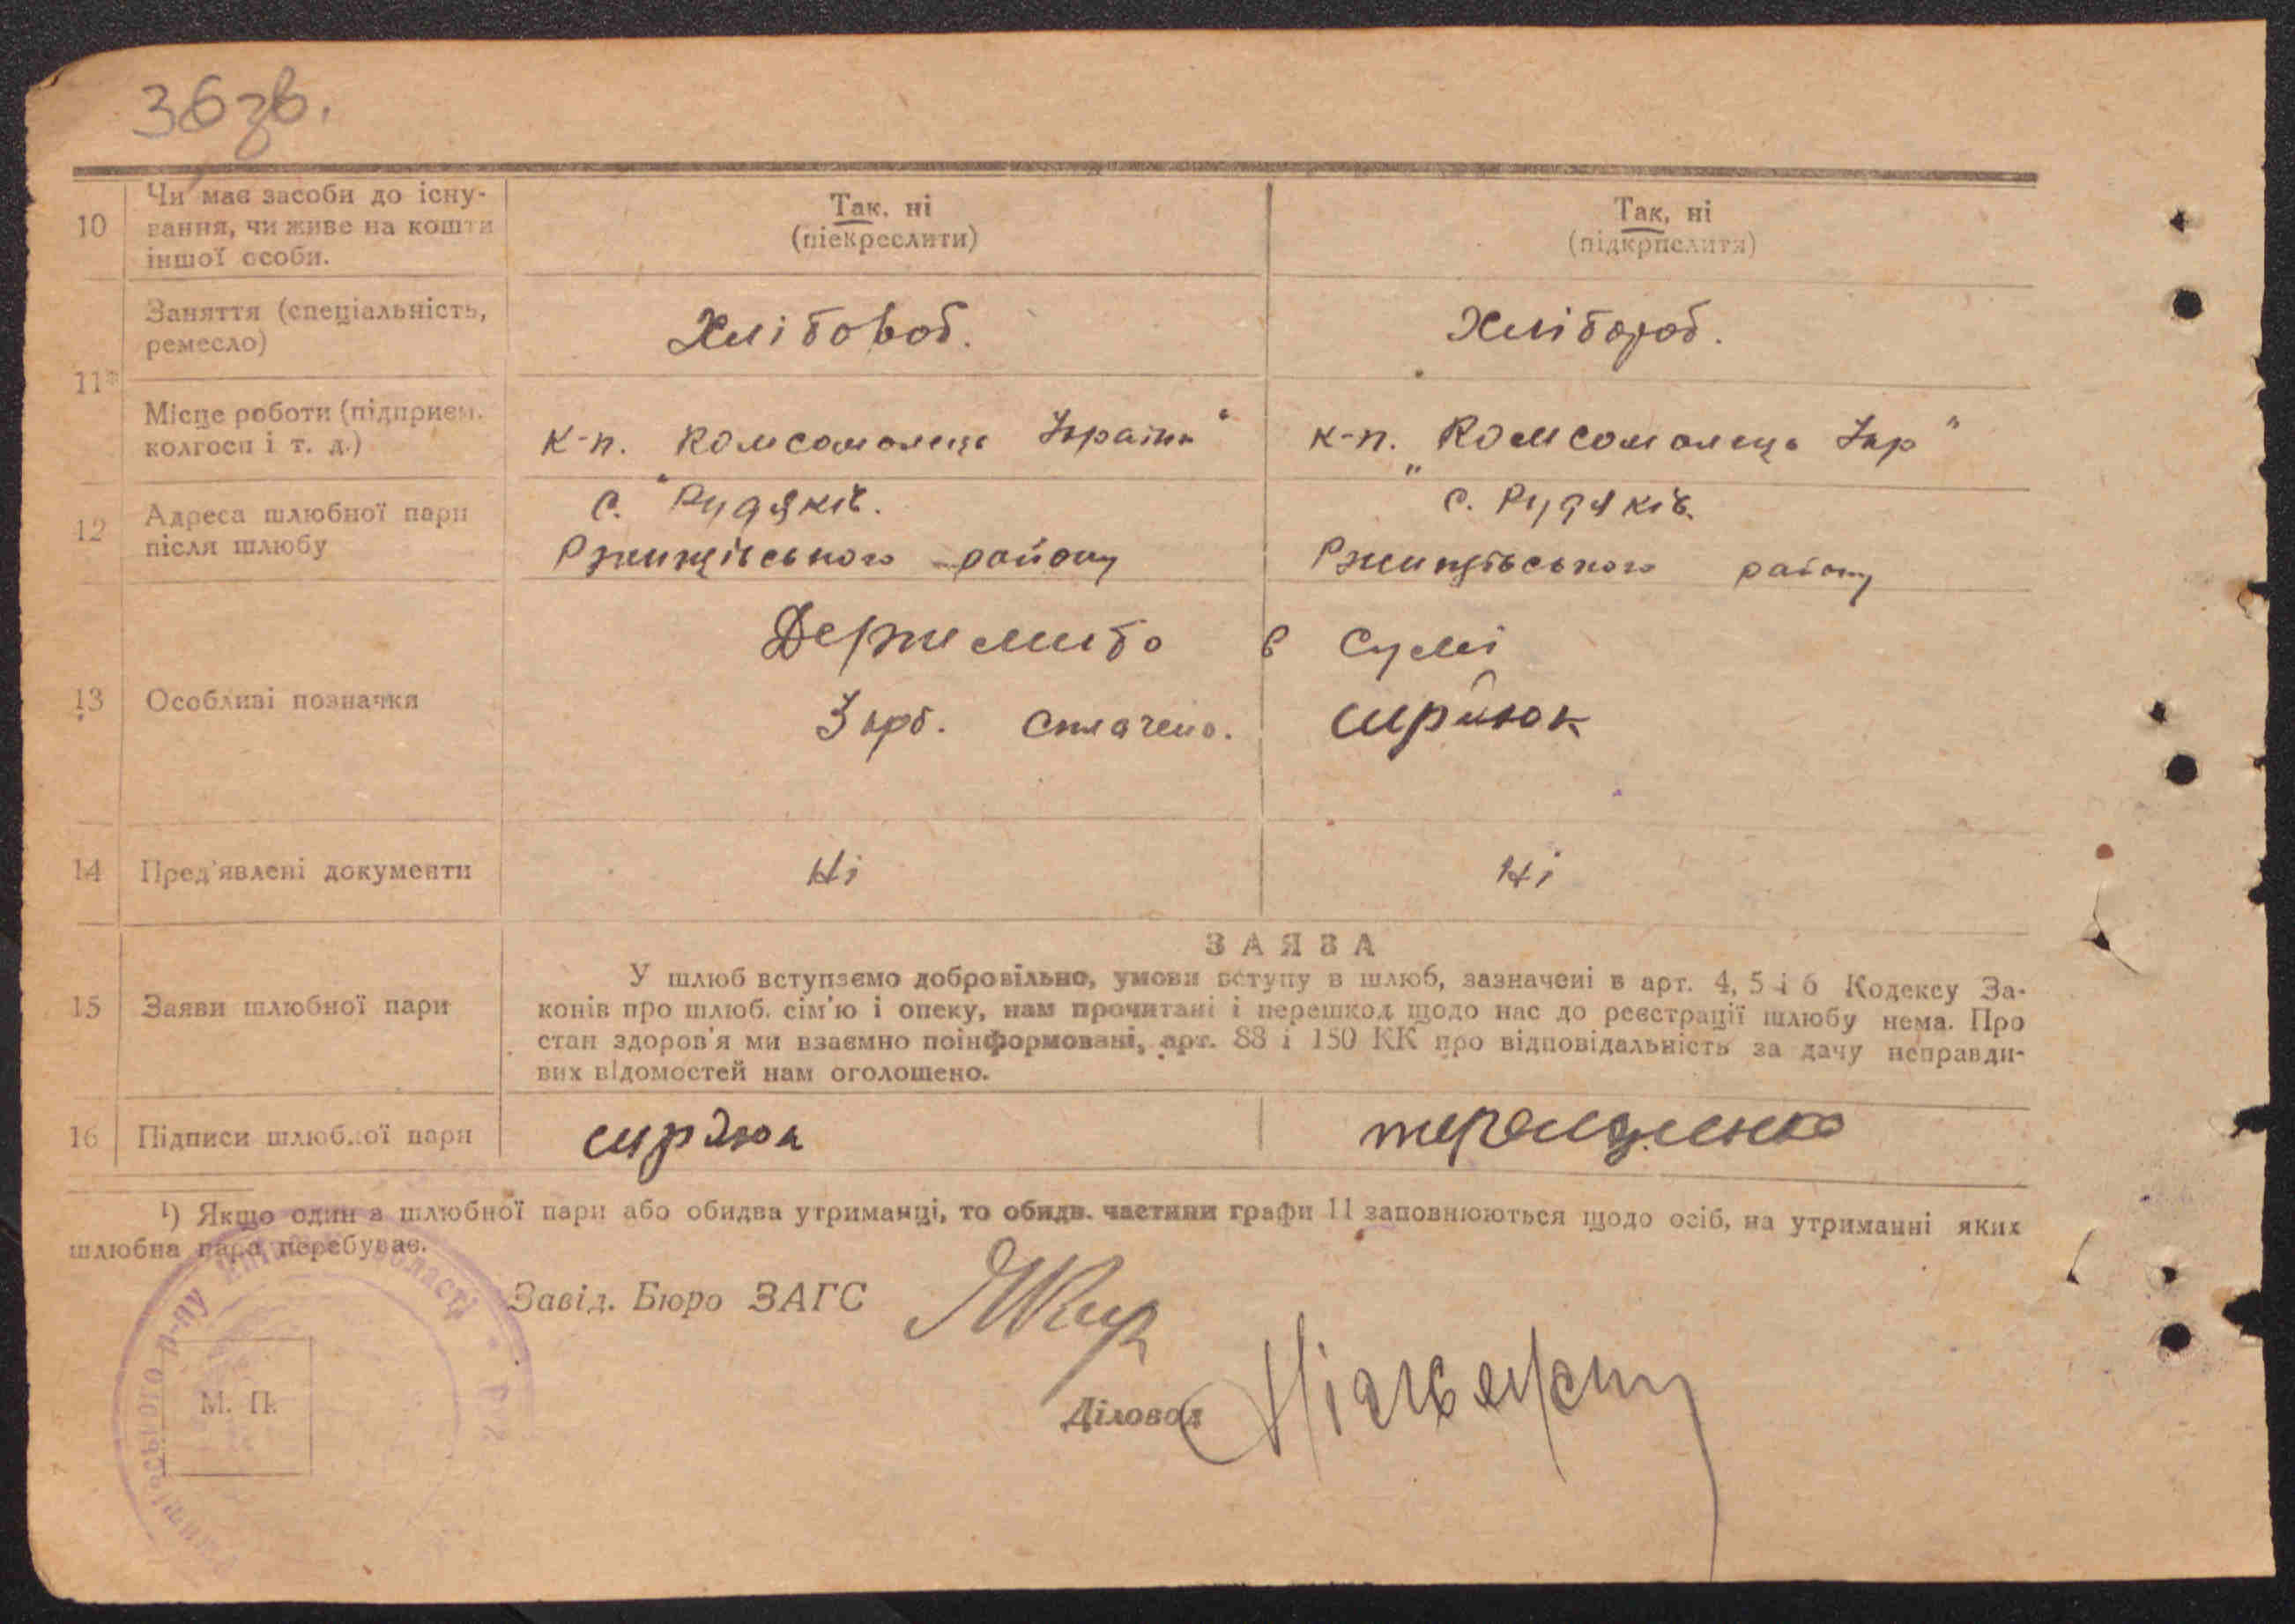 36 зв.
10
Чи має засоби до існу-
вання, чи живе на кошти
іншої особи.
Так, ні
(піекреслити)
Так, ні
(підкрпслитя)
11*
Заняття (спеціальність,
ремесло)
Хлібород.
Хлібороб.
Місце роботи (підприєм.
колгосп і т. д.)
к-п. Комсомолець України"
к-п. „Комсомолець Укр"
12
Адреса шлюбної пари
після шлюбу
с. Рудяків.
Ржищівського району
с. Рудяків.
Ржищівського району
13
Особливі позначки
Держмито в сумі
3 крб. сплачено. 
14
Пред'явлені документи
Ні
Ні
15
Заяви шлюбної пари
ЗАЯЗА
У шлюб вступаємо добровільно, умови вступу в шлюб, зазначені в арт. 4, 5 і 6 Кодексу За-
конів про шлюб. сім'ю і опеку, нам прочитані і перешкод щодо нас до реєстрації шлюбу нема. Про
стан здоров'я ми взаємно поінформовані, арт. 88 і 150 КК про відповідальність за дачу неправди-
вих відомостей нам оголошено.
16
Підписи шлюбної пари
терещенко
¹) Якщо один з шлюбної пари або обидва утриманці, то обидв. частини графи 11 заповнюються щодо осіб, на утриманні яких
шлюбна пара перебуває.
Завід. Бюро ЗАГС
Діловод
М. П.